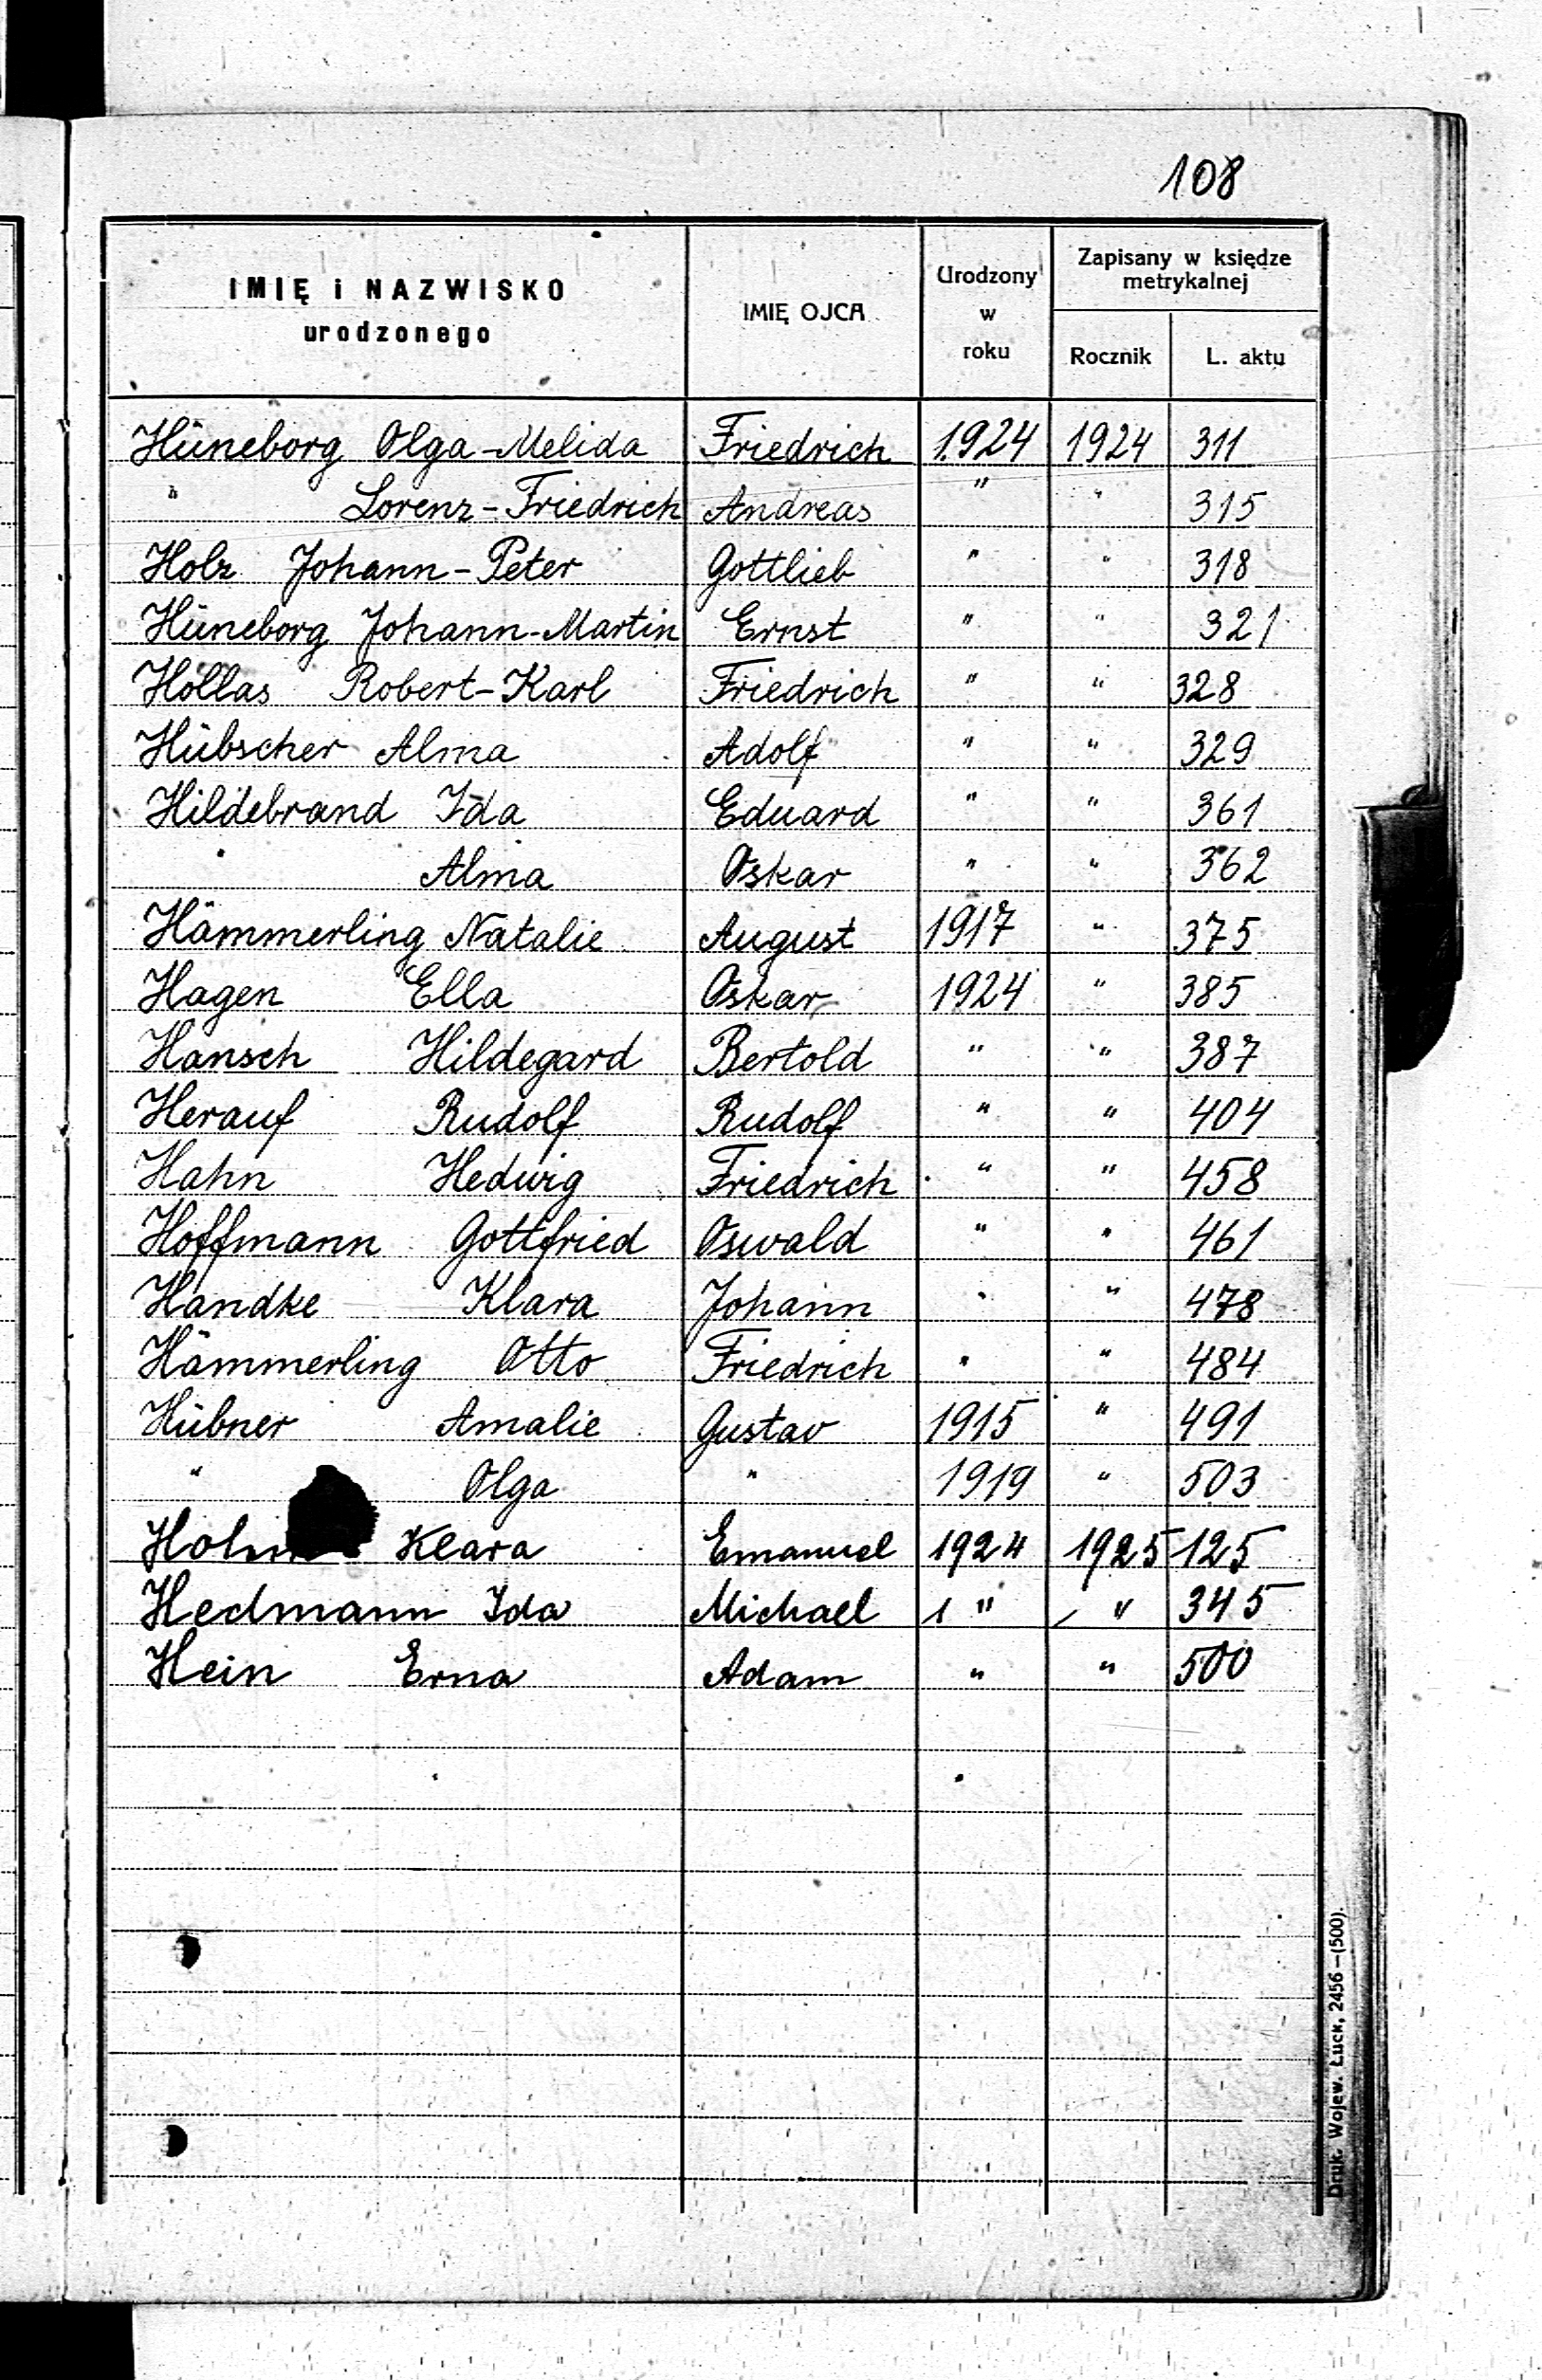 108
IMIĘ i NAZWISKO urodzonego IMIĘ OJCA Urodzony w roku Zapisany w księdze metrykalnej Rocznik L. aktu
Hüneborg Olga-Melida Friedrich 1924 1924 311
" Lorenz-Friedrich Andreas " " 315
Holz Johann-Peter Gottlieb " " 318
Hüneborg Johann-Martin Ernst " " 321
Höllas Robert-Karl Friedrich " " 328
Hübscher Alma Adolf " " 329
Hildebrand Ida Eduard " " 361
" Alma Oskar " " 362
Hämmerling Natalie August 1917 " 375
Hagen Ella Oskar 1924 " 385
Hansch Hildegard Bertold " " 387
Herauf Rudolf Rudolf " " 404
Hahn Hedwig Friedrich " " 458
Hoffmann Gottfried Oswald " " 461
Handke Klara Johann " " 478
Hämmerling Otto Friedrich " " 484
Hübner Amalie Gustav 1915 " 491
" Olga " 1919 " 503
Klara Emanuel 1924 1925 125
Hedmann Ida Michael " " 345
Hein Erna Adam " " 500
Druk. Wojew. Łuck, 2456-(500).